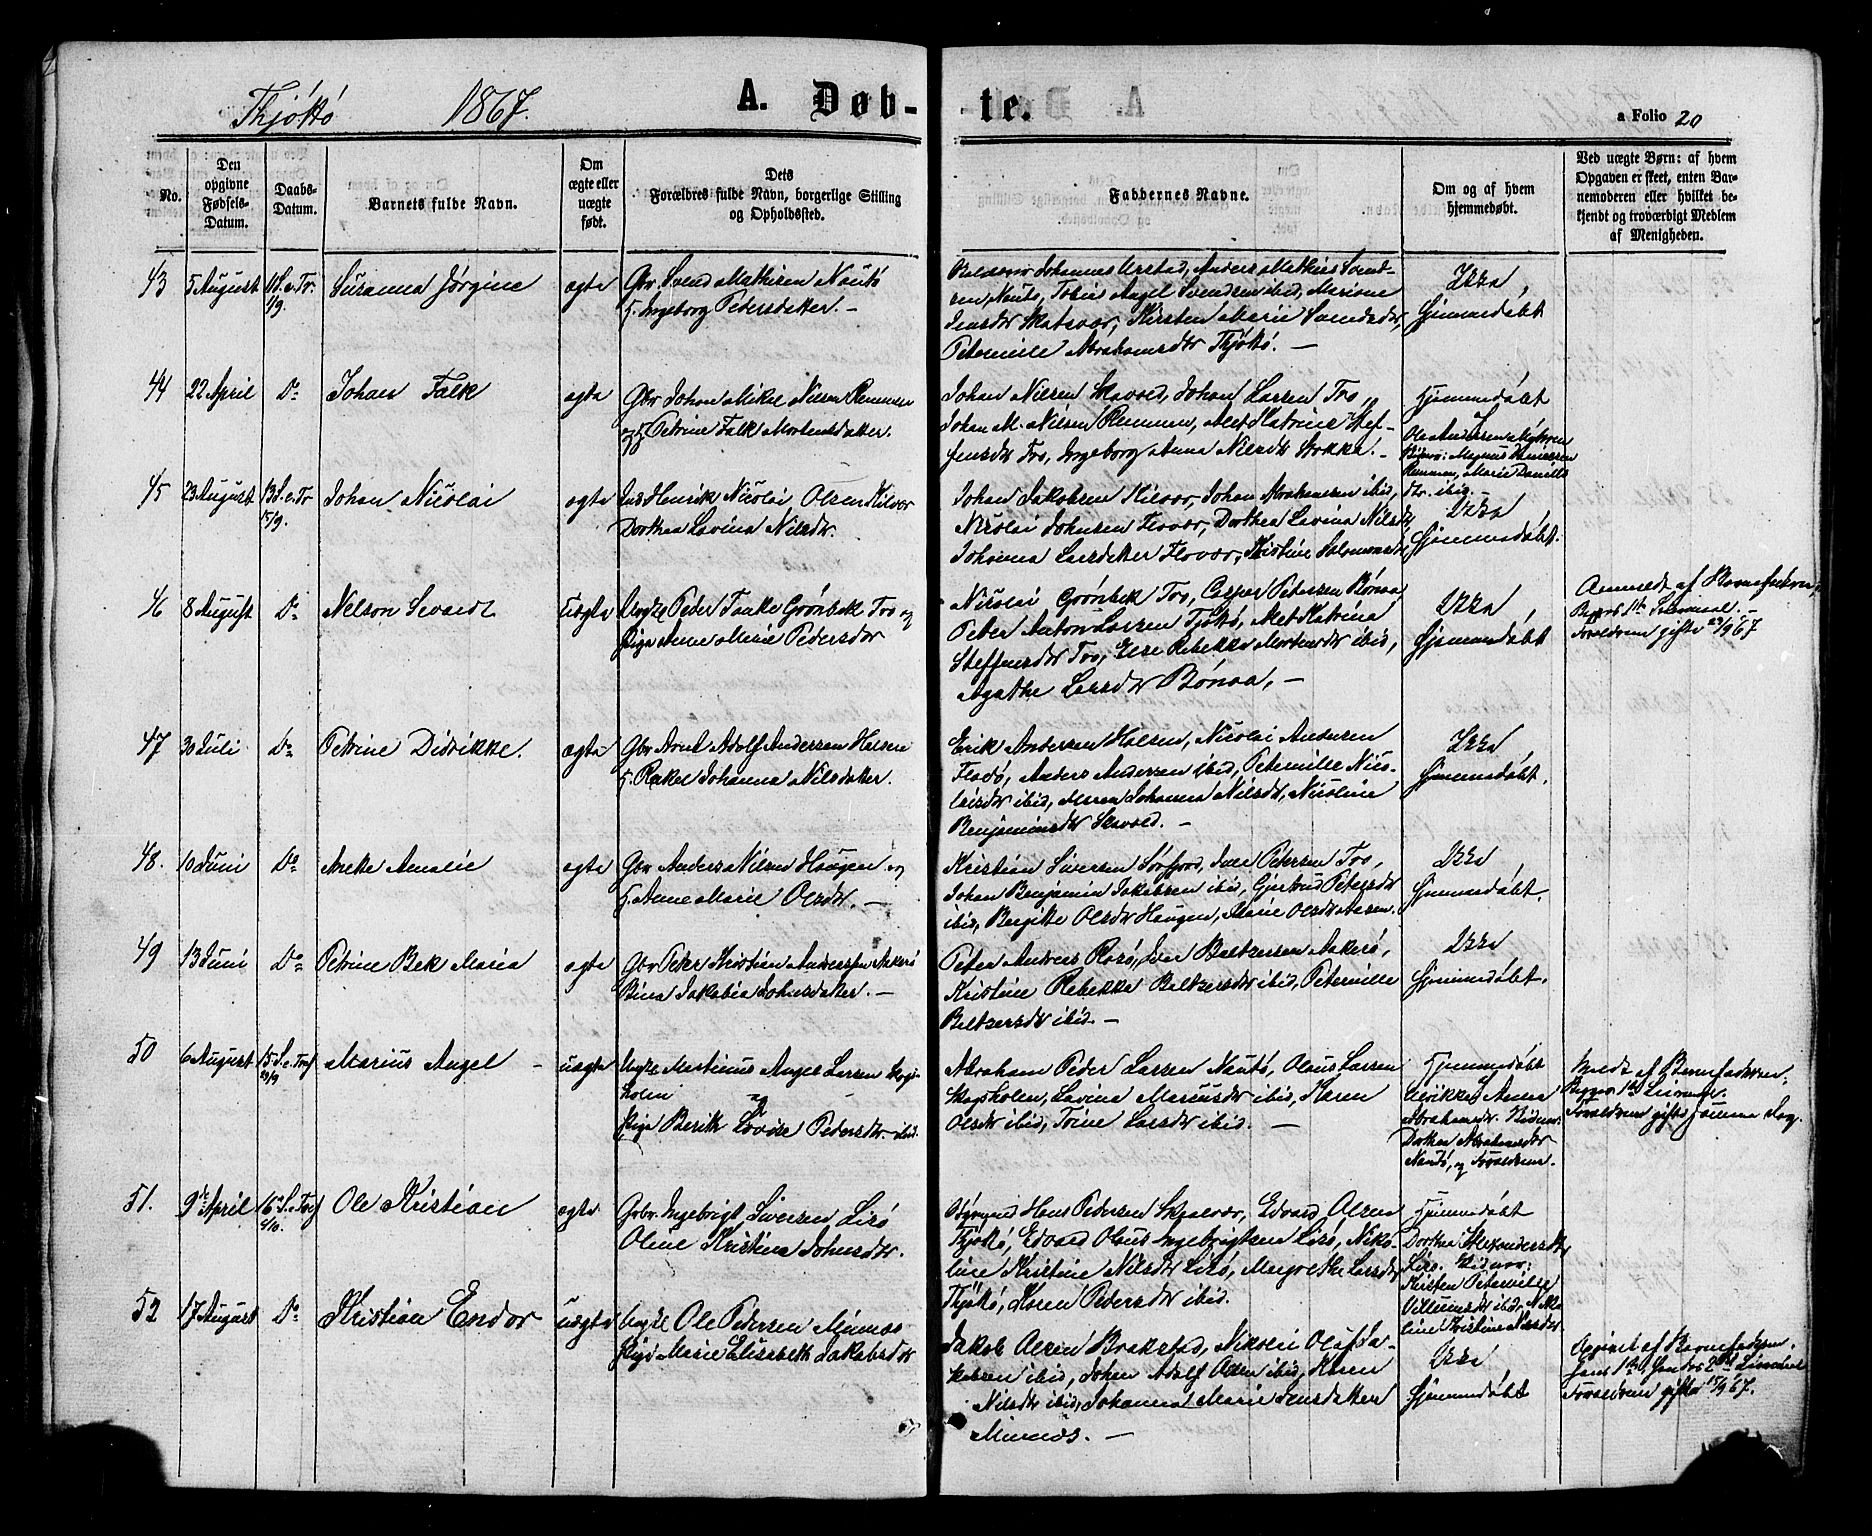 Thjöttö 1867. A. Døb-te. a Folio 20
No.
Den opgivne Fødsels-Datum.
Daabs-Datum.
Barnets fulde Navn.
Om ægte eller uægte født.
Dets Forældres fulde Navn, borgerlige Stilling og Opholdssted.
Faddernes Navne.
Om og af hvem hjemmedøbt.
Ved uægte Børn: af hvem Opgaven er skeet, enten Barnemoderen eller hvilket bekjendt og troværdigt Medlem af Menigheden.
43 5 August 11 S. e. Tr. 1/9. Susanna Jörgine ægte
Gbr Svend Mathisen Nautö
H. Ingeborg Pedersdatter. –
Johannes Anders Mathias Svend-
sen Nautö, Tobias Angel Svendsen ibid, Mariane
Jensdtr Skatvær, Kirsten Marie Svendsdtr,
Petermille Abrahamsdtr Thjöttö. –
Ikke
Hjemmedöbt
44 22 April Do Johan Falk ægte
Gbr Johan Mikal Nilsen Remmen
og H. Petrine Falk Mortensdatter.
Johan Nilsen Skavold, Johan Larsen Tro,
Johan M. Nilsen Remmen, Met Katrine Stef-
fensdtr Tro, Ingeborg Anna Nilsdtr Stokka. –
Hjemmedöbt
Ole Andersen
Remmen, Marie Daniels-
dtr. ibid. –
45 23 August 13 S. e. Tr 15/9. Johan Nicolai ægte
Inds Henrik Nicolai Olsen Kilvær
Dorthea Lavina Nilsdtr.
Johan Jakobsen Kilvær, Johan Abrahamsen ibid,
Nicolai Johnsen Flovær, Dorthea Lavina Nilsdtr,
Johanna Larsdatter Flovær, Kristine
Ikke
Hjemmedöbt.
46 8 August Do Nelson Sevardt uægte
Ungkl Peder Grönbek Tro og
Pige Anne Marie Pedersdtr
Nicolai Grönbek Tro, Casper Petersen Bönaa,
Peter Anton Larsen Tjöttö, Met Katrina
Steffensdtr Tro, Else Rebekka Mortensdtr ibid,
Agathe Larsdtr Bönaa, –
Ikke
Hjemmedöbt
Anmeldt af Barnefaderen,
Begges 1ste Leiermaal. –
Forældrene gifte 23/9 67
47 30 Juli Do Petrine Didrikke. ægte
Gbr Arnt Adolf Andersen Halsen
H. Rakel Johanna Nilsdatter.
Erik Andersen Halsen, Nicolai Andersen
Flodö, Anders Andersen ibid, Petermille Nico-
laisdtr ibid, Maren Johanna Nilsdtr, Nicoline
Benjaminsdtr Skavold. –
Ikke
Hjemmedöbt.
48. 10 Juni Do Amalie ægte
Gbr Anders Nilsen Haugen og
H. Anne Marie Olsdtr. –
Kristian Siversen Sörfjord, Petersen Tro,
Johan Benjamin Jakobsen ibid, Gjertrud Petersdtr
ibid, Bergitte Olsdtr Haugen, Marie Olsdtr
Ikke
Hjemmedöbt.
49 13 Juni Do Petrine Bek Maria ægte
Gbr Peter Kristian Andersen
Jakobia Johnsdatter. –
Peter Andreas Rosö, Baltzersen
Kristine Rebekka Baltzersdtr ibid, Petermille
Baltzersdtr ibid. –
Ikke
Hjemmedöbt.
50 6 August 15 S. e. Tref 29/9 Marius Angel – uægte
Ungkl Martinus Angel Larsen Skogs-
holm og
Pige Berith Lovise Pedersdtr ibid.
Abraham Peder Larsen Nautö, Olaus Larsen
Skogsholm, Lavina Mariusdtr ibid, Karen
Olsdtr ibid, Trine Larsdtr ibid. –
Hjemmedöbt
Ulrikke Anna
Abrahamsdtr.
Dorthea Abrahamsdtr
Nautö, og Forældrene.
Meldt af Barnefaderen.
Begges 1ste Leiermaal.
Forældrene gifte samme Dag.
51. 9de April 16 S. e. Tref 6/10. Ole Kristian ægte
Gbr. Ingebrigt Siversen Lisö
Oline Kristina Johnsdtr.
Hans Pedersen Skjalvær, Edvard Olsen
Thjöttö, Edvard Olaus Ingebrigtsen Lisö, Niko-
line Kristine Nilsdtr Lisö, Margrethe Larsdtr
Thjöttö, Karen Pedersdtr ibid.
Hjemmedöbt
Dorthea Alexandersdtr
Lisö.
Kirsten Petermille
Villumsdtr ibid, Niko-
line Kristine Nilsdtr
52 17 August Do Kristian Endor uægte
Ungkl Ole Pedersen Mindnæs
Pige Marie Elisabeth Jakobsdtr
Jakob Olsen Brakstad, Nikolai Olufsen Ja-
kobsen ibid, Johan Adolf Olsen ibid, Karen
Nilsdtr ibid, Johanna Marie Jensdatter
Mindnæs. –
Ikke
Hjemmedöbt
Opgivet af Barnefaderen.
Hans 1ste Hendes 2det Leiermaal
Forældrene gifte 15/9 67.